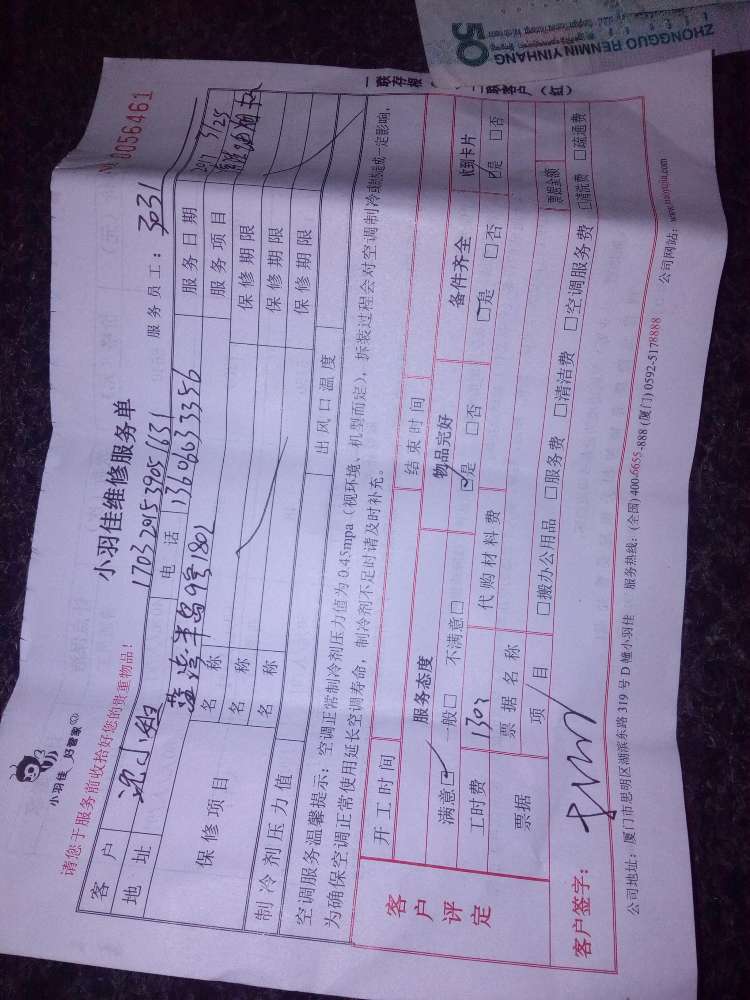 ZHONGGUO RENMIN YINHANG
50
一联存根
二联客户（红）
小羽佳 好管家
小羽佳维修服务单
No 0056461
请您于服务前收拾好您的贵重物品！
1703291539051631
服务员工：
客户
沈小姐
电话
13606033356
服务日期
2017 3/25
地址
蓝湾半岛9号1802
服务项目
保修项目
名称
保修期限
名称
保修期限
名称
保修期限
制冷剂压力值
出风口温度
空调服务温馨提示：空调正常制冷剂压力值为0.45mpa（视环境、机型而定），拆装过程会对空调制冷或制热造成一定影响，
为确保空调正常使用延长空调寿命，制冷剂不足时请及时补充。
客户评定
开工时间
结束时间
服务态度
物品完好
备件齐全
收到卡片
满意☑ 一般□ 不满意□
☑是 □否
□是 □否
☑是 □否
工时费
130
代购材料费
票据
票据名称
票据金额
项目
□搬办公用品 □服务费 □清洁费 □空调服务费 □清洗费 □疏通费
客户签字：
公司地址：厦门市思明区湖滨东路319号D幢小羽佳
服务热线：(全国) 400-6655-888 (厦门) 0592-5178888
公司网站：www.xiaoyujia.com